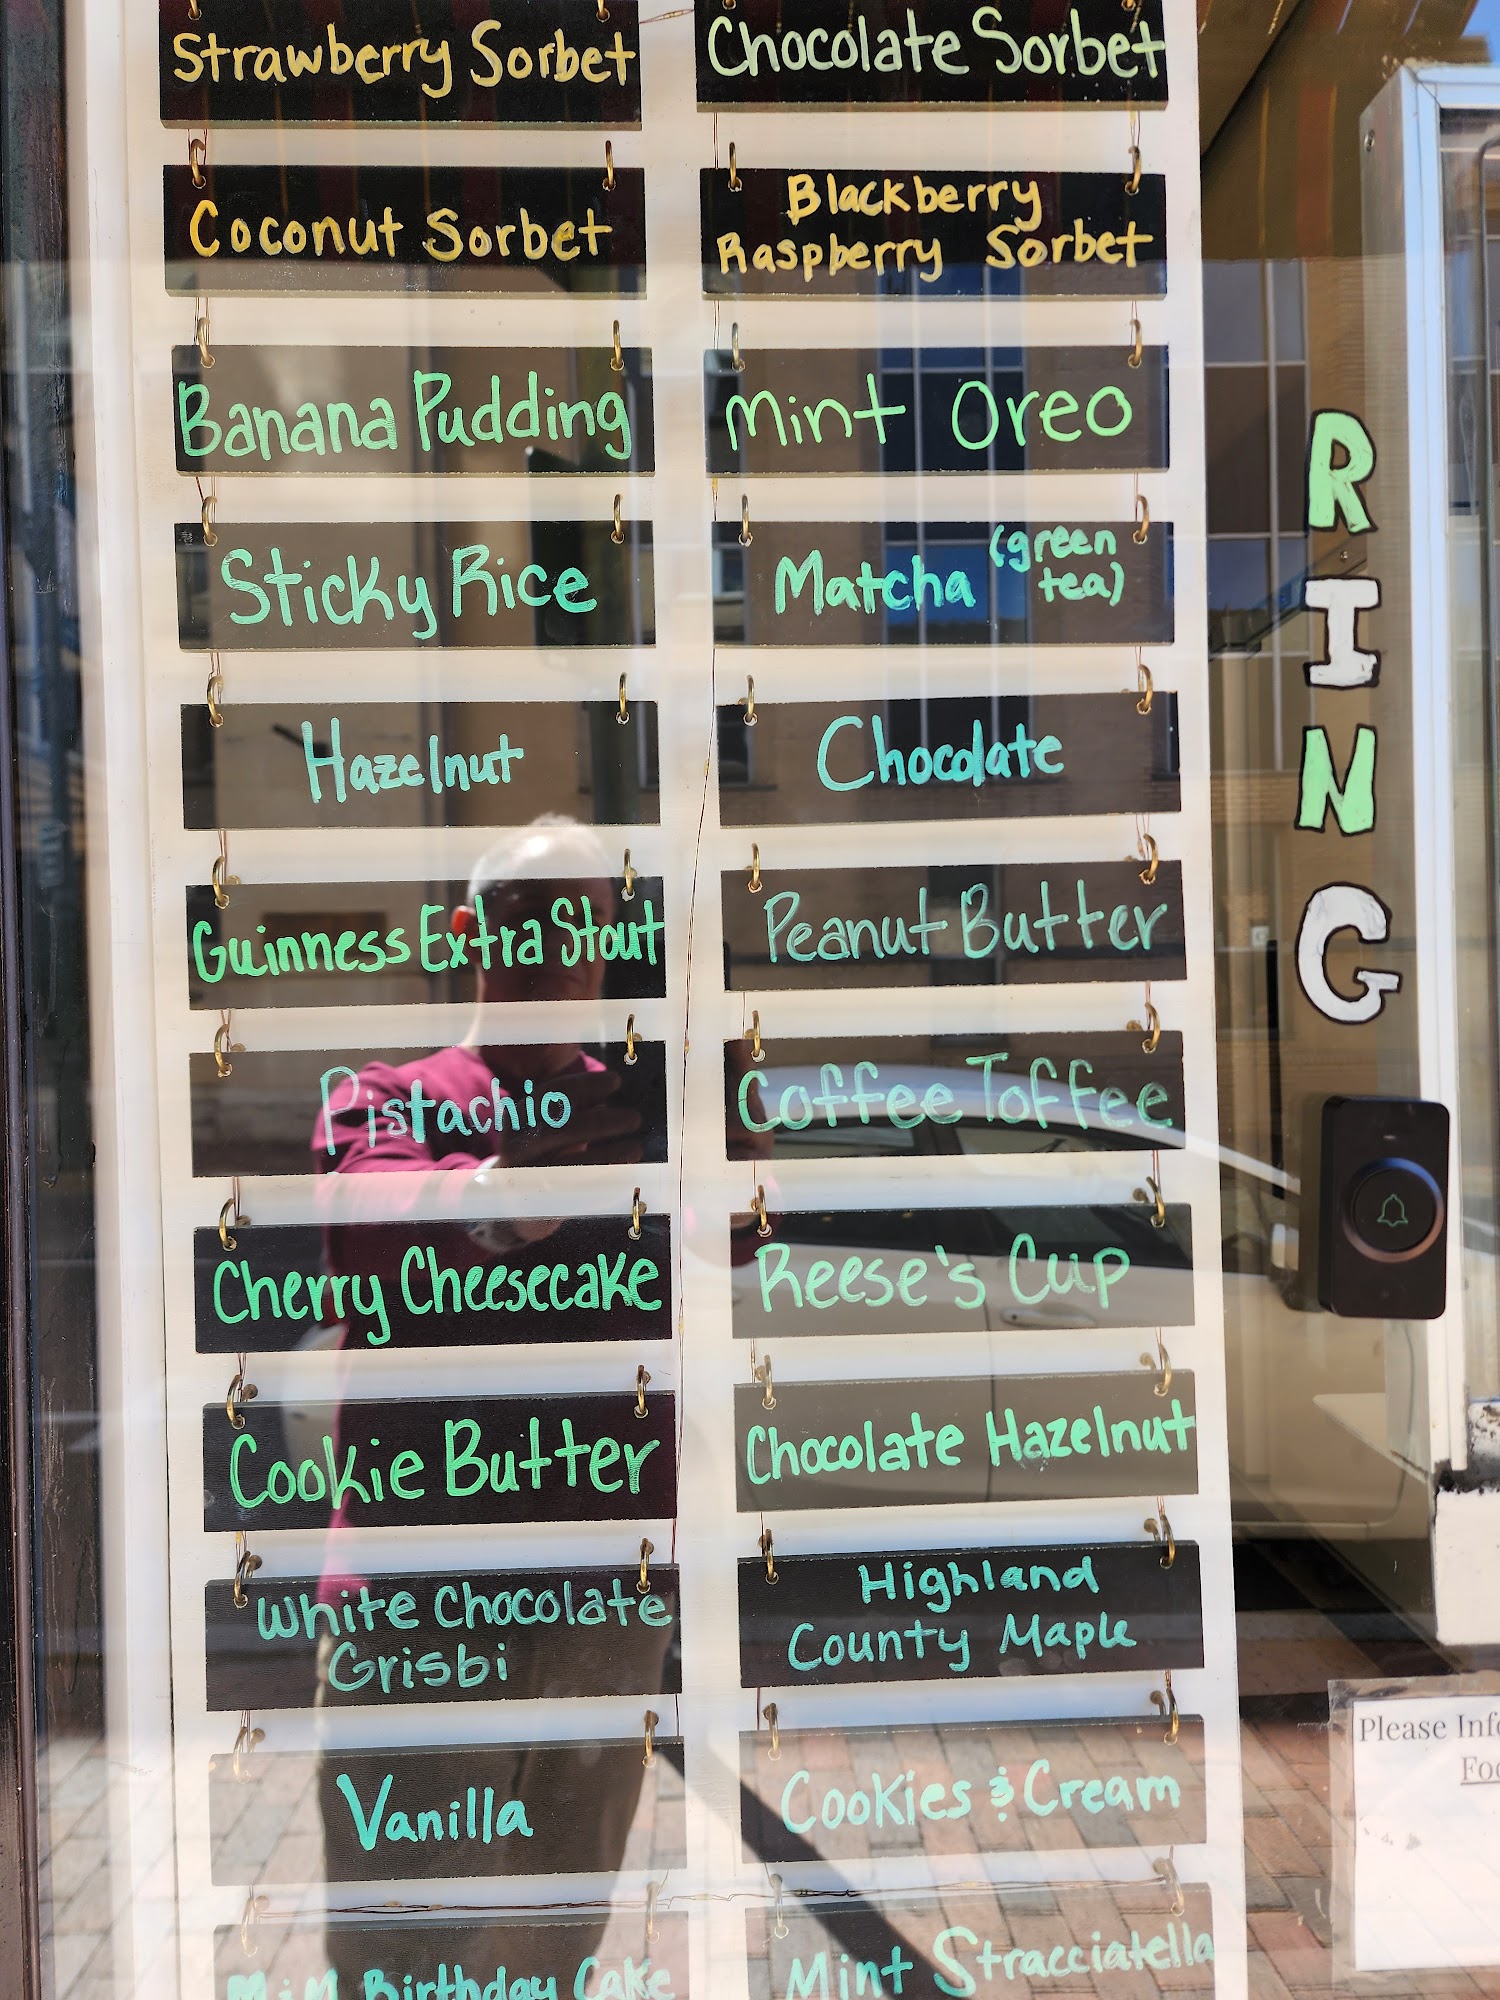 Strawberry Sorbet
Chocolate Sorbet
Coconut Sorbet
Blackberry
Raspberry Sorbet
Banana Pudding
Mint Oreo
Sticky Rice
Matcha (green
tea)
Hazelnut
Chocolate
Guinness Extra Stout
Peanut Butter
Pistachio
Coffee Toffee
Cherry Cheesecake
Reese's Cup
Cookie Butter
Chocolate Hazelnut
White Chocolate
Grisbi
Highland
County Maple
Vanilla
Cookies & Cream
M&M Birthday Cake
Mint Stracciatella
RING
Please